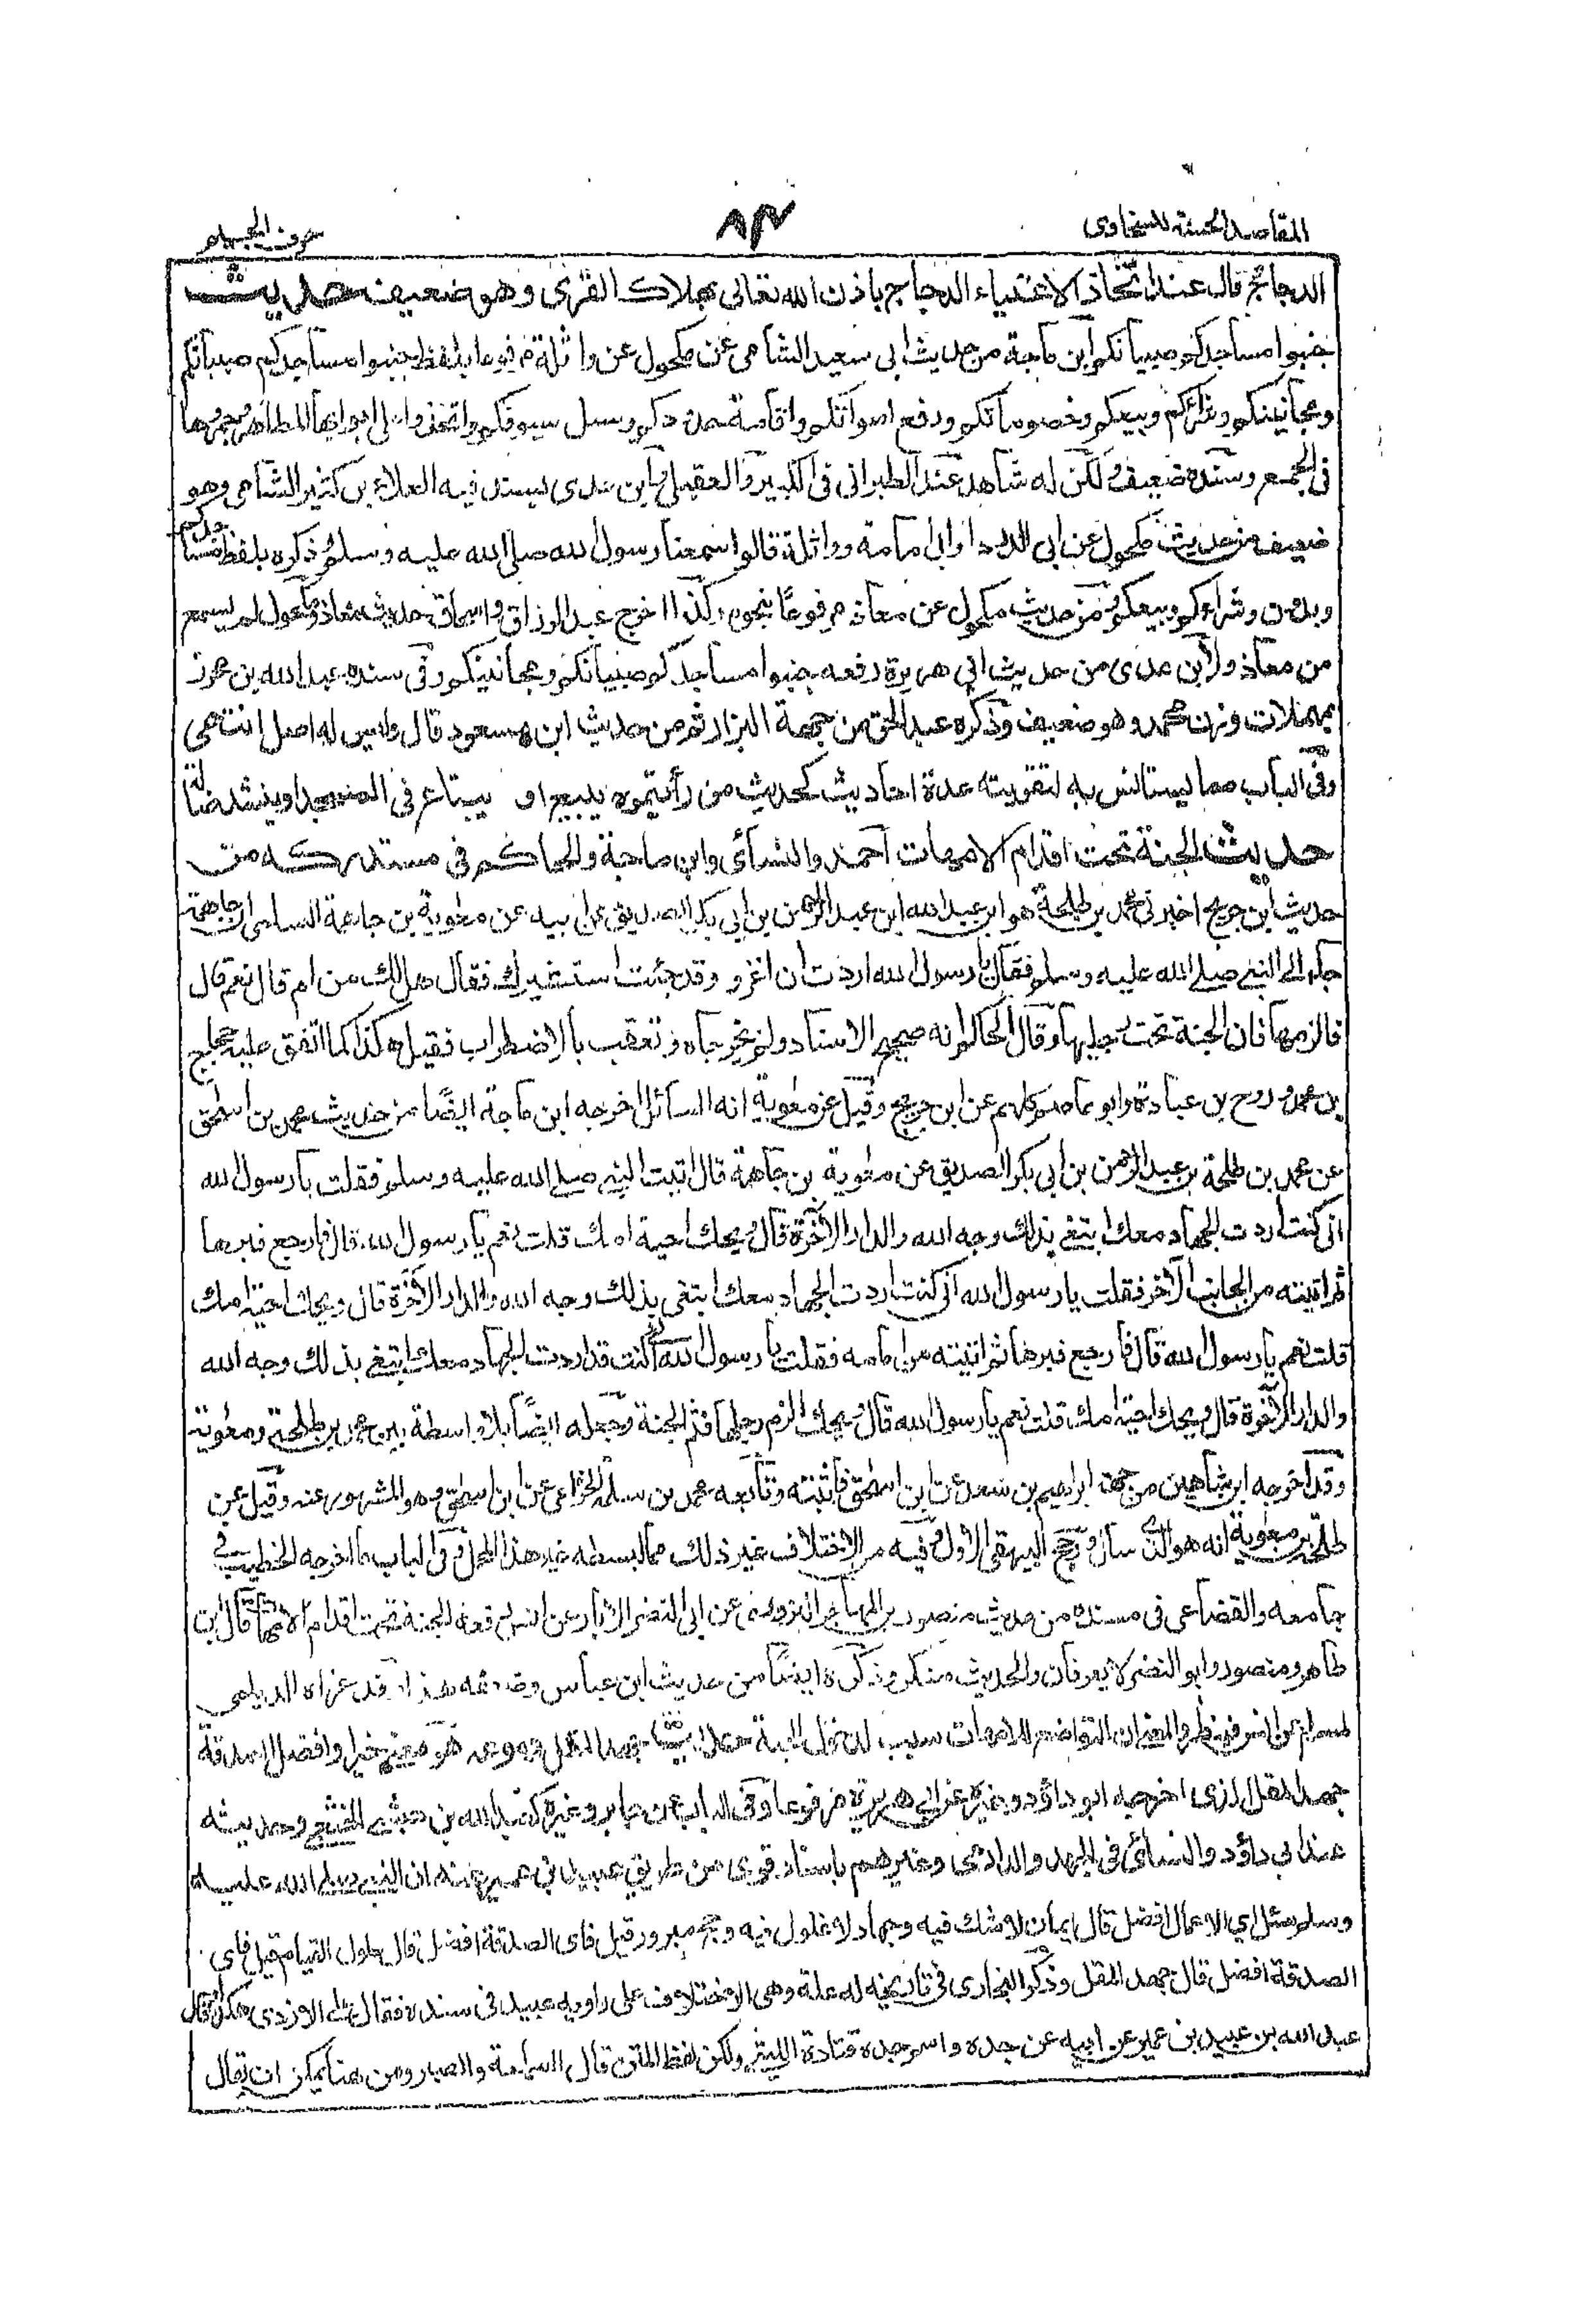 المقاصد الحسنة للسخاوى
٨٣
حرف الجيم
الدجاج قال عند اتخاذ الاغنياء الدجاج ياذن الله تعالى بهلاك القرى وهو ضعيف حديث
جنبوا مساجدكم صبيانكم ابن ماجة من حديث ابى سعيد الشامى عن مكحول عن واثلة مرفوعا بلفظ جنبوا مساجدكم صبيانكم
ومجانينكم وشراءكم وبيعكم وخصوماتكم ورفع اصواتكم واقامة حدودكم وسل سيوفكم واتخذوا على ابوابها المطاهر وجمروها
فى الجمع وسنده ضعيف لكن له شاهد عند الطبرانى فى الكبير والعقيلى وابن عدى بسند فيه العلاء بن كثير الشامى وهو
ضعيف من حديث مكحول عن ابى الدرداء وابى امامة وواثلة قالوا سمعنا رسول الله صلى الله عليه وسلم فذكره بلفظ مساجدكم
وبدون وشراءكم وبيعكم ومن حديث مكحول عن معاذ مرفوعا بنحوه وكذا اخرج عبد الرزاق واسحاق حديث معاذ ومكحول لم يسمع
من معاذ ولابن عدى من حديث ابى هريرة رفعه جنبوا مساجدكم صبيانكم ومجانينكم وفى سنده عبد الله بن محرر
بمهملات وزن محمد وهو ضعيف وذكره عبد الحق من جهة البزار ثم من حديث ابن مسعود قال وليس له اصل انتهى
وفى الباب مما يستانس به لتقويته عدة احاديث كحديث من رأيتموه يبيع او يبتاع فى المسجد او ينشد ضالة
حديث الجنة تحت اقدام الامهات احمد والنسائى وابن ماجة والحاكم فى مستدركه من
حديث ابن جريج اخبرنى محمد بن طلحة هو ابن عبد الله ابن عبد الرحمن بن ابى بكر الصديق عن ابيه عن معٰوية بن جاهمة السلمى ان جاهمة
جاء الى النبى صلى الله عليه وسلم فقال يا رسول الله اردت ان اغزو وقد جئت استشيرك فقال هل لك من ام قال نعم قال
فالزمها فان الجنة تحت رجليها وقال الحاكم انه صحيح الاسناد ولم يخرجاه وتعقب بالاضطراب فقيل هكذا كما اتفق عليه حجاج
بن محمد وروح بن عبادة وابو عاصم كلهم عن ابن جريج وقيل عن معٰوية انه السائل اخرجه ابن ماجة ايضًا من حديث محمد بن اسحٰق
عن محمد بن طلحة بن عبد الرحمن بن ابى بكر الصديق عن معٰوية بن جاهمة قال اتيت النبى صلى الله عليه وسلم فقلت يا رسول الله
انى كنت اردت الجهاد معك ابتغى بذلك وجه الله والدار الآخرة قال ويحك احية امك قلت نعم يا رسول الله قال فارجع فبرها
ثم اتيته من الجانب الآخر فقلت يا رسول الله انى كنت اردت الجهاد معك ابتغى بذلك وجه الله والدار الآخرة قال ويحك احية امك
قلت نعم يا رسول الله قال فارجع فبرها ثم اتيته من امامه فقلت يا رسول الله انى كنت قد اردت الجهاد معك ابتغى بذلك وجه الله
والدار الآخرة قال ويحك احية امك قلت نعم يا رسول الله قال ويحك الزم رجلها فثم الجنة وجعله ايضًا بلا واسطة بين محمد بن طلحة ومعٰوية
وقد اخرجه ابن شاهين من جهة ابراهيم بن سعد عن ابن اسحٰق فاثبته وتابعه محمد بن سلمة الخزاعى عن ابن اسحٰق وهو المشهور عنه وقيل عن
طلحة بن معٰوية انه هو الذى سأل ورجح البيهقى الاول وفيه من الاختلاف غير ذلك مما لبسطه غير هذا المحل وفى الباب ما اخرجه الخطيب فى
جامعه والقضاعى فى مسنده من حديث منصور بن المهاجر البزورى عن ابى النضر الابار عن انس رفعه الجنة تحت اقدام الامهات قال ابن
طاهر ومنصور وابو النضر لا يعرفان والحديث منكر وذكره ايضًا من حديث ابن عباس وضعفه هذا وقد عزاه الديلمى
لمسلم عن انس فينظر والمعنى ان التواضع للامهات سبب لدخول الجنة حديث جهد المقل دموعه هو معنى خير او افضل الصدقة
جهد المقل الذى اخرجه ابو داؤد وغيره عن ابى هريرة مرفوعا وفى الباب عن جابر وغيره كعبد الله بن حبشى الخثعمى وحديثه
عند ابى داؤد والنسائى فى الجهد والدارمى وغيرهم باسناد قوى من طريق عبيد بن عمير عنه ان النبى صلى الله عليه
وسلم سئل اى الاعمال افضل قال ايمان لا شك فيه وجهاد لا غلول فيه وحج مبرور قيل فاى الصدقة افضل قال طول القيام قيل فاى
الصدقة افضل قال جهد المقل وذكر البخارى فى تاريخه له علة وهى الاختلاف على راويه عبيد فى سنده فقال على الازدى هكذا وقال
عبد الله بن عبيد بن عمير عن ابيه عن جده واسم جده قتادة الليثى ولكن لفظ المتن قال السماحة والصبر ومن هنا يمكن ان يقال